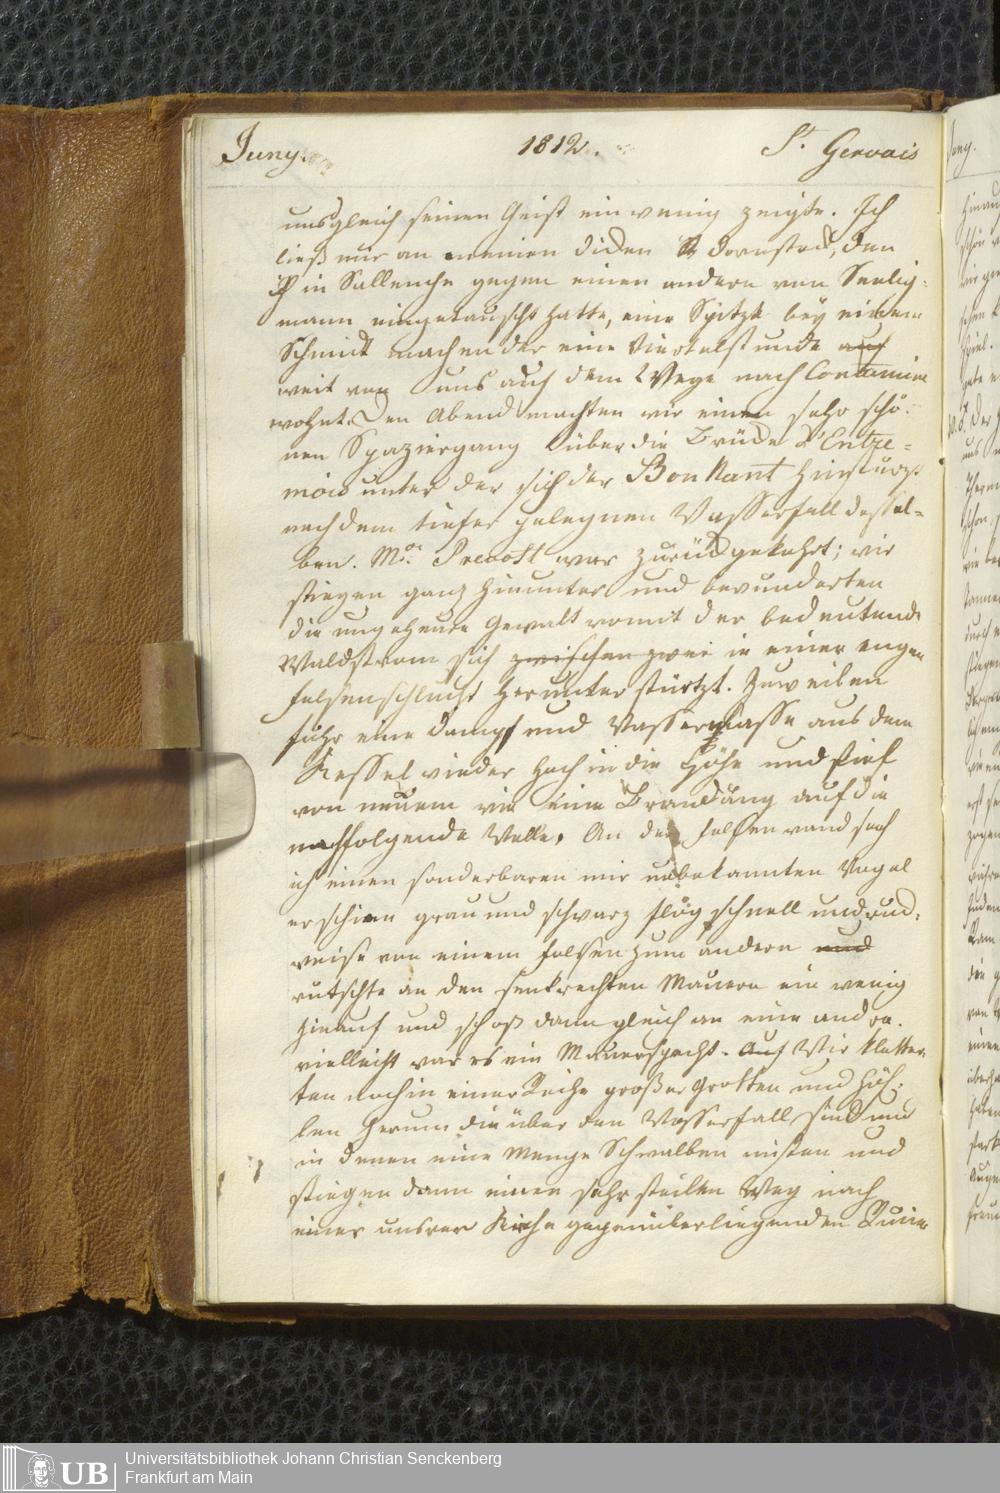 Juny. 1812. St. Gervais
unsgleich seinen Geist ein wenig zeigte. Ich
ließ nur an meinen dicken Dornstock, den
ich in Sallenche gegen einen andern von Seelig-
mann eingetauscht hatte, eine Spitze bey einem
Schmidt machen der eine Viertelstunde auf
weit von uns auf dem Wege nach Contamine
wohnt. Den Abend machten wir einen sehr schö-
nen Spaziergang über die Brücke d'Entre-
mou unter der sich der Bon Nant hinstürzt
nach dem tiefer gelegnen Wasserfall dessel-
ben. Mr. Prevost war zurückgekehrt; wir
stiegen ganz hinunter und bewunderten
die ungeheure Gewalt womit der bedeutende
Waldstrom sich zwischen zwei in einer engen
Felsenschlucht herunter stürtzt. Zuweilen
fuhr eine Dampf und Wassermasse aus dem
Kessel wieder hoch in die Höhe und stieß
von neuem wie eine Brandung auf die
nachfolgende Welle. An der Felsenwand sah
ich einen sonderbaren mir unbekannten Vogel
er schien grau und schwarz flog schnell und ruck-
weise von einem Felsen zum andern und
rutschte an den senkrechten Mauern ein wenig
hinauf und schoß dann gleich an eine andre.
vielleicht war es ein Mauerspecht. Auf Wir kletter-
ten noch in einer Reihe großer Grotten und Höh-
len herum die über den Wasserfall sind und
in denen eine Menge Schwalben nisten und
stiegen dann einen sehr steilen Weg nach
einer unsrer Kirche gegenüberliegenden Ruine
Universitätsbibliothek Johann Christian Senckenberg
Frankfurt am Main
UB